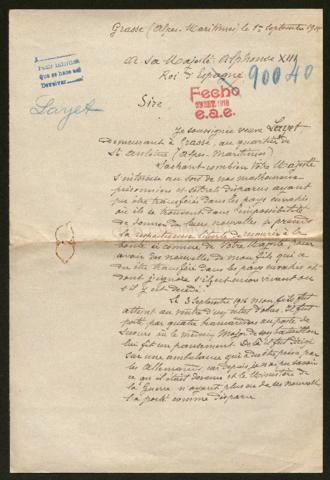 Grasse (Alpes Maritimes) le 1er Septembre 19
A Sa Majesté Alphonse XIII
Roi d'Espagne
90040
Fecho
1918
e.a.e.
Devolver
Layet
Sire,
Je soussignée veuve Layet
demeurant à Grasse, au quartier de
St Antoine (Alpes-Maritimes)
Sachant combien Votre Majesté
s'intéresse au sort de nos malheureux
prisonniers et soldats disparus ayant
pu être transférés dans les pays envahis
où ils se trouvent dans l'impossibilité
de donner de leurs nouvelles, je prends
la respectueuse liberté de recourir à la
bonté si connue de Votre Majesté, pour
avoir des nouvelles de mon fils qui a
dû être transféré dans les pays envahis et
dont j'ignore s'il est encore vivant ou
s'il est décédé.
Le 3 Septembre 1916 mon fils fut
atteint au ventre d'un éclat d'obus. Il fut
porté par quatre brancardiers au poste de
secours où le médecin Major de son bataillon
lui fit un pansement. De là il fut dirigé
sur une ambulance qui a dû être prise par
les Allemands, car depuis je n'ai pu savoir
ce qu'il était devenu et le Ministère de
la Guerre n'ayant plus eu de ses nouvelles
l'a porté comme disparu